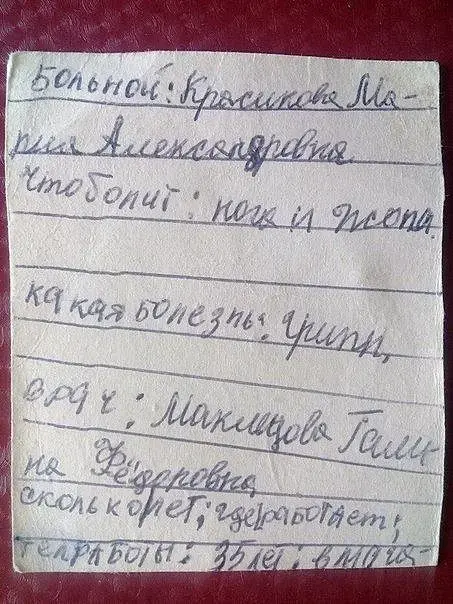 Больной: Красикова Ма-
рия Александровна
Чтоболит: нога и жопа.
какаяболезнь: Грипп,
врач: Гали-
на Фёдоровна
сколько лет; где работает;
тел работы: 35 лет: в мага-